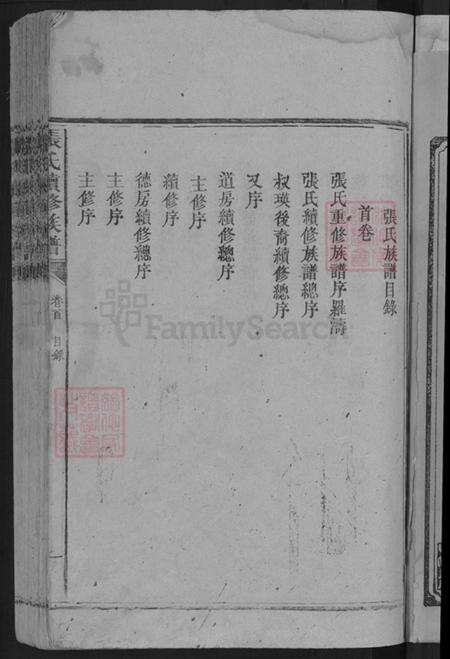 張氏族譜目錄
首卷
張氏重修族譜序羅濤
張氏續修族譜總序
叔瑛後裔續修總序
又序
道房續修總序
主修序
續修序
德房續修總序
主修序
主修序
張氏續修族譜
卷首 目錄
FamilySearch